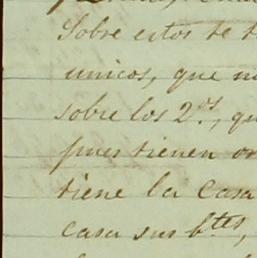 Sobre estos se
unicos, que
sobre los 2.os, qu
pues tienen
tiene la Casa
casa sus b.tes,